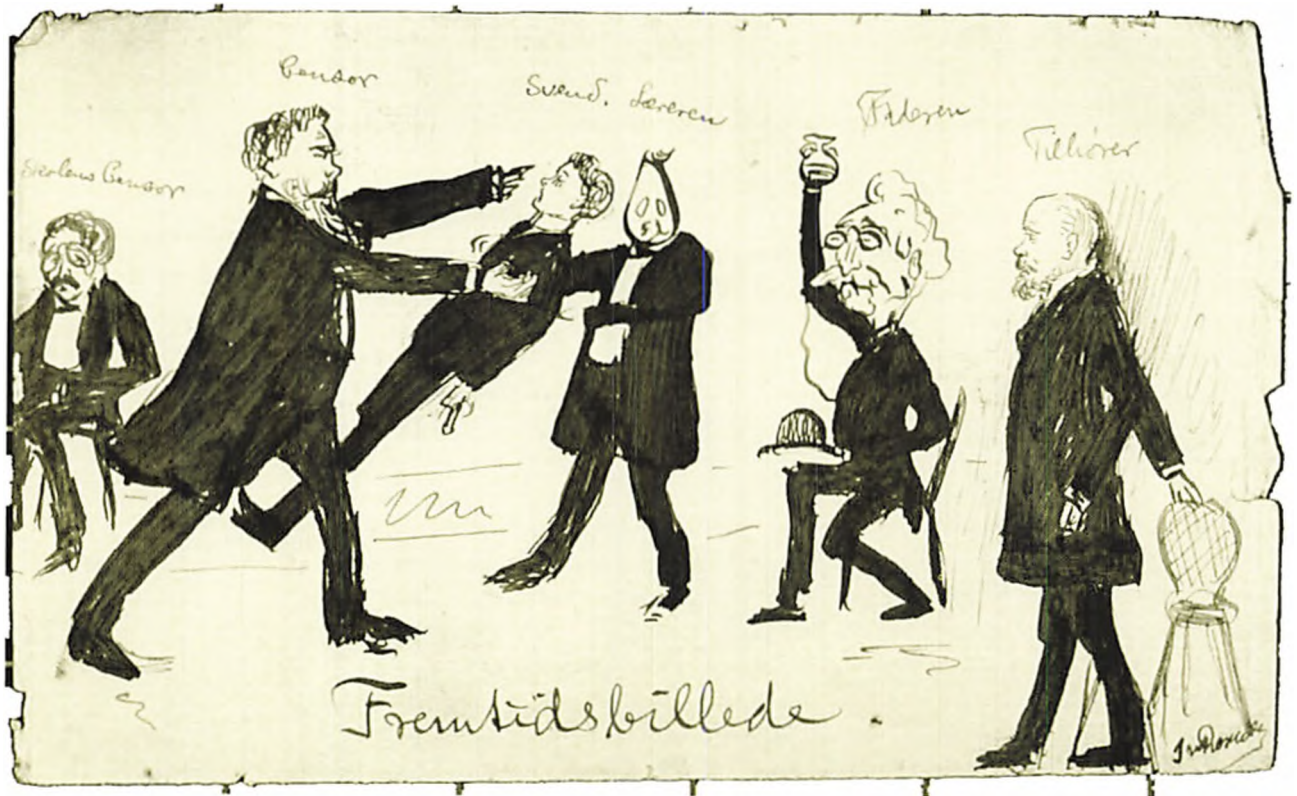 Skolens Censor
Censor
Svend. Læreren
Faderen
Tilhører
Fremtidsbillede.